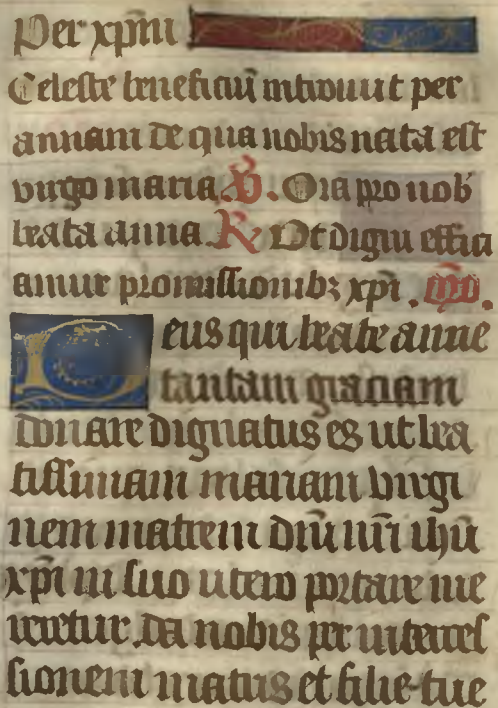 Per xp̄m
Celeste beneficiū introiuit per
annam de qua nobis nata est
virgo maria. V̄. Ora pro nob̄
beata anna. R̄ Vt digni effici
amur promissionibꝫ xp̄i. Or̄o.
Deus qui beate anne
tantam graciam
donare dignatus es ut bea
tissimam mariam virgi
nem matrem dn̄i nr̄i ihū
xp̄i in suo utero portare me
reretur. Da nobis per interces
sionem matris et filie tue